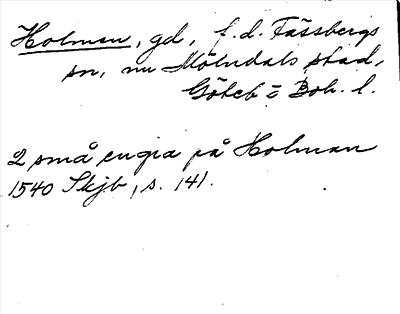 Holmen, gd, f. d. Fässbergs
sn, nu Mölndals stad,
Göteb o Boh. l.
2 små engia på Holman
1540 Skjb, s. 141.